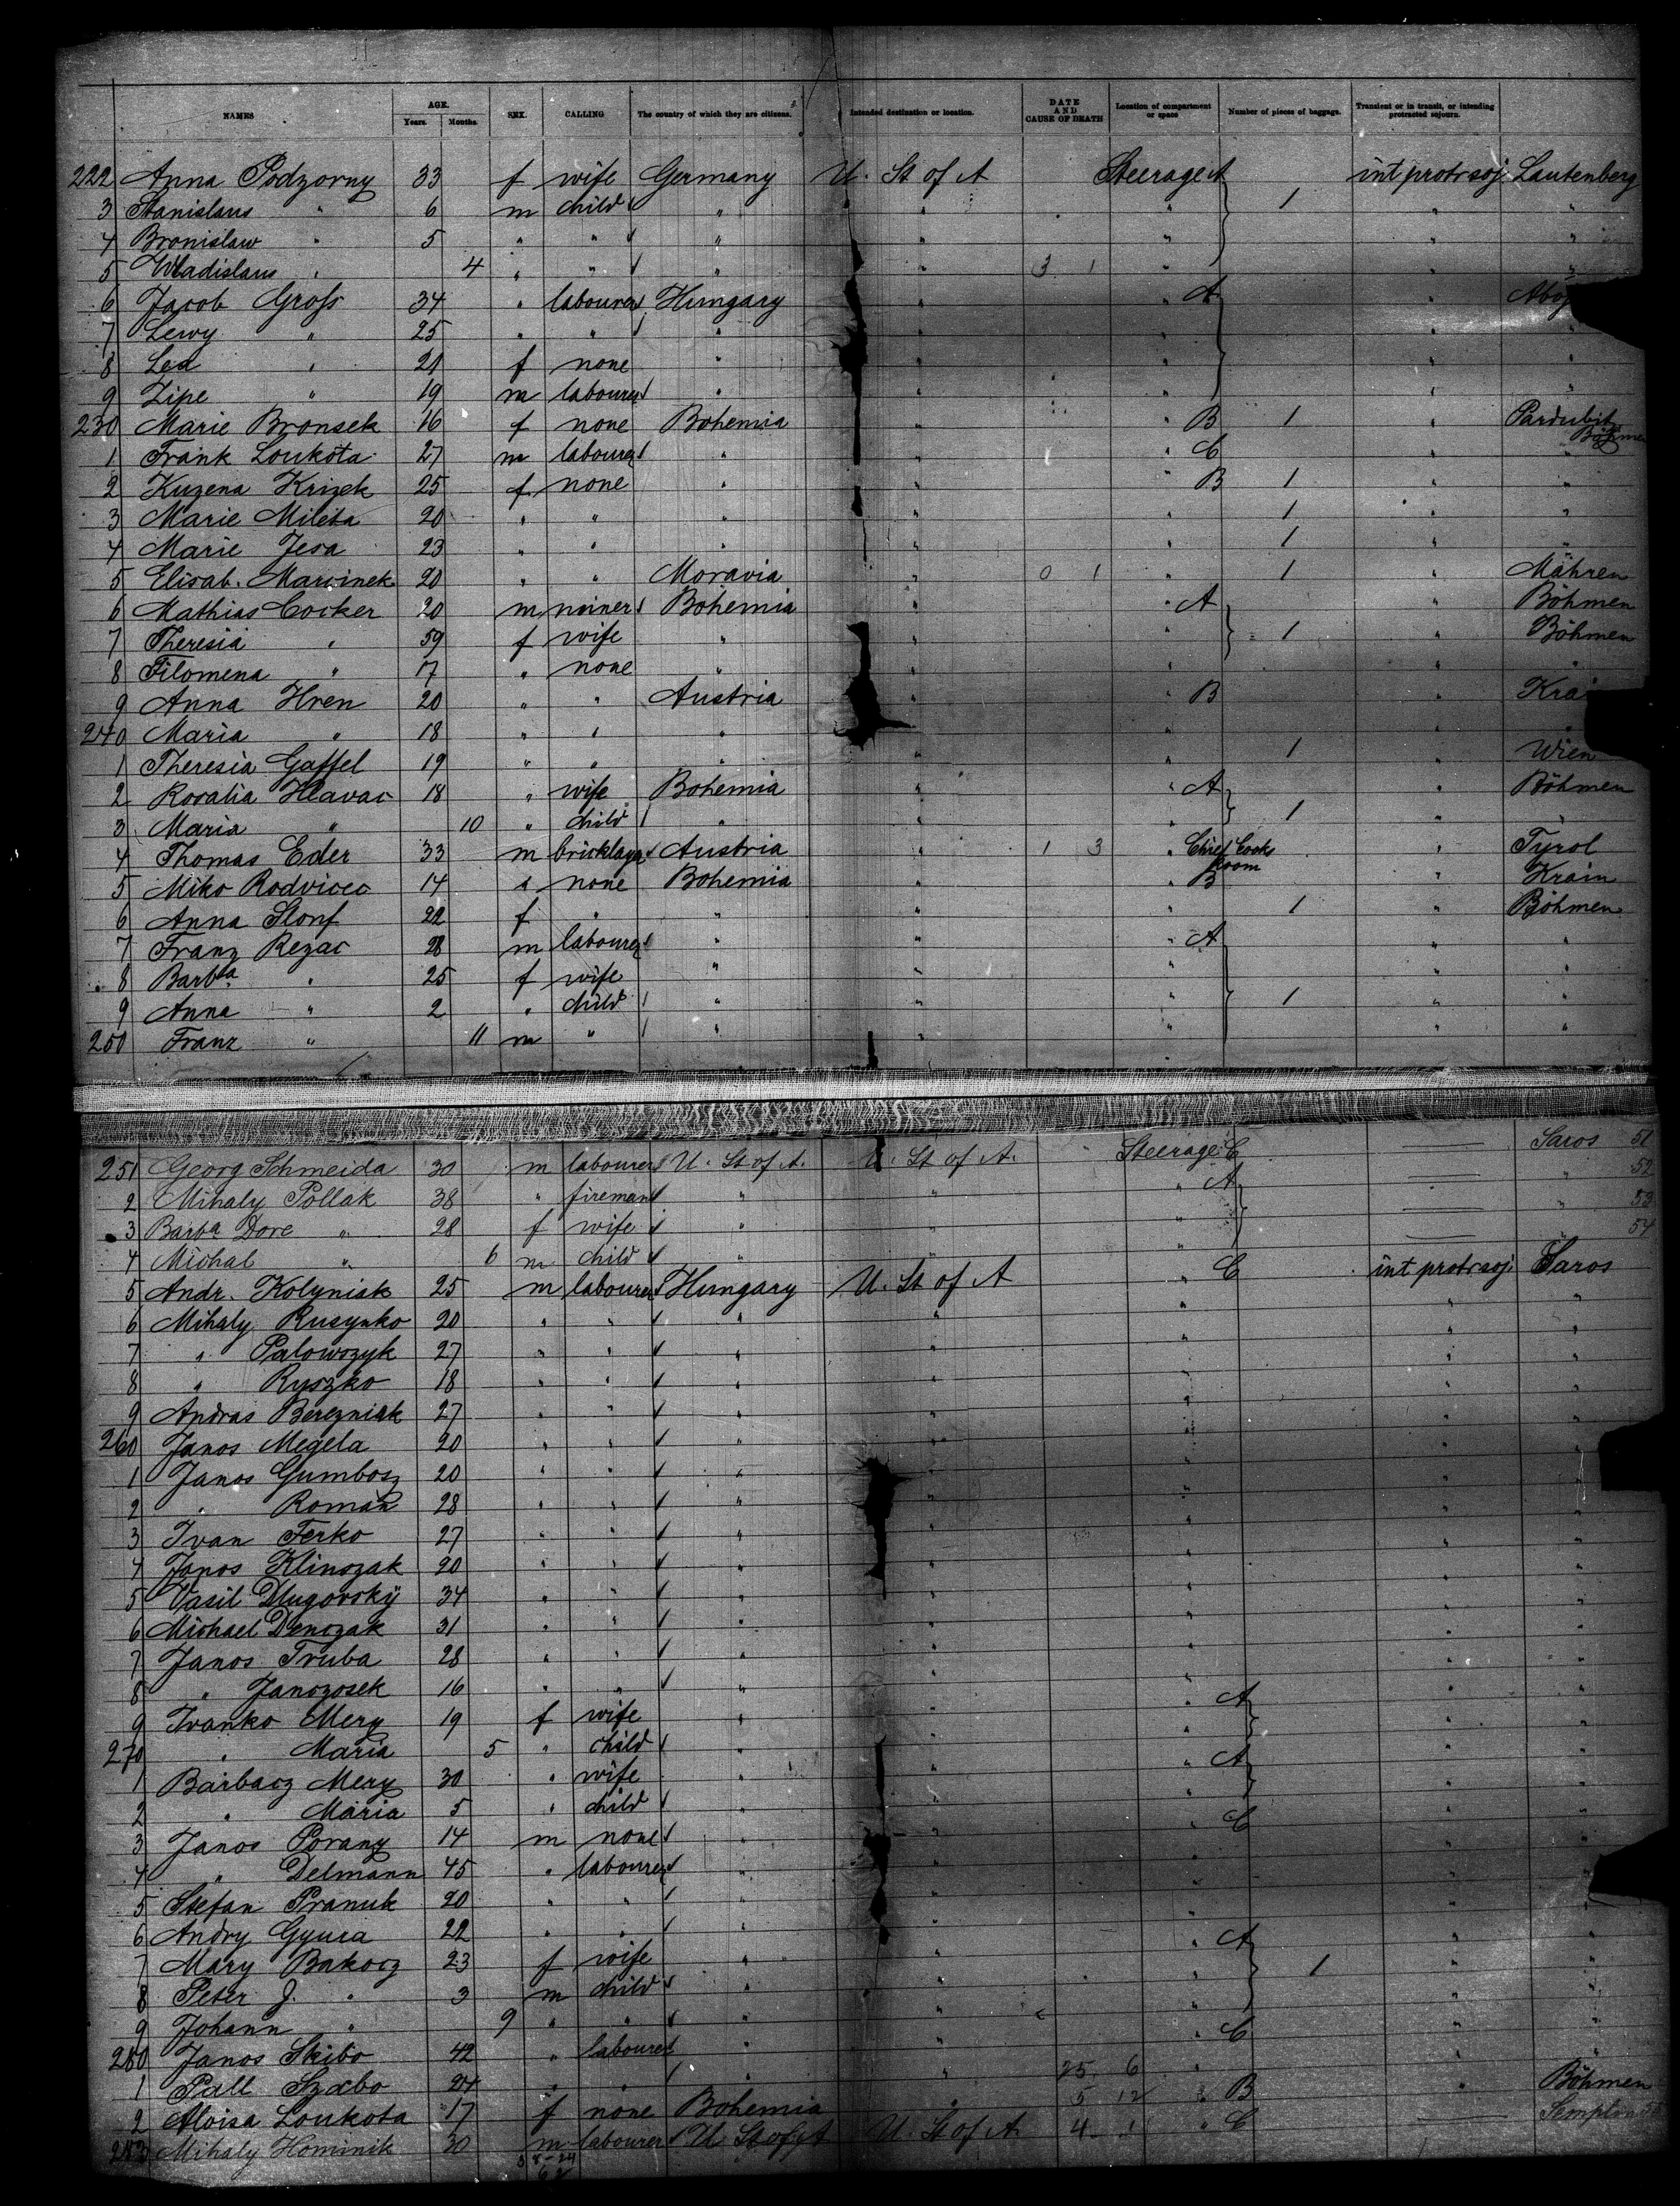 NAMES AGE. Years. Months. SEX. CALLING The country of which they are citizens. Intended destination or location. DATE AND CAUSE OF DEATH Location of compartment or space Number of pieces of baggage. Transient or in transit, or intending protracted sojourn.
222 Anna Podzorny 33 f wife Germany U. St of A Steerage A int protrsoj. Lautenberg
3 Stanislaus " 6 m child " " " 1 " "
4 Bronislaw " 5 " " " " " " "
5 Wladislaus " 4 " " " " 3 1 " " "
6 Jacob Gross 34 " labourer Hungary " " A "
7 Lewy " 25 " " " " " " "
8 Lea " 21 f none " " " " "
9 Zipe " 19 m labourer " " " " "
230 Marie Bronsek 16 f none Bohemia " " B 1 " Pardubitz Böhmen
1 Frank Loukota 27 m labourer " " " C " "
2 Kuzena Krizek 25 f none " " " B 1 " "
3 Marie Mileta 20 " " " " " 1 " "
4 Marie Jesa 23 " " " " " 1 " "
5 Elisab. Marcinek 20 " " Moravia " 0 1 " 1 " Mähren
6 Mathias Cocker 20 m miner Bohemia " " A " Böhmen
7 Theresia " 59 f wife " " " 1 " Böhmen
8 Filomena " 17 " none " " " " "
9 Anna Hren 20 " " Austria " " B "
240 Maria " 18 " " " " " " "
1 Theresia Gaffel 19 " " " " " 1 " Wien
2 Rosalia Hlavac 18 " wife Bohemia " " A " Böhmen
3 Maria " 10 " child " " " 1 " "
4 Thomas Eder 33 m bricklayer Austria " 1 3 " Chief Cooks Room " Tyrol
5 Miko Rodvicec 14 " none Bohemia " " B " Krain
6 Anna Slonf 22 f " " " " 1 " Böhmen
7 Franz Rezac 28 m labourer " " " A " "
8 Barbta " 25 f wife " " " " "
9 Anna " 2 " child " " " 1 " "
250 Franz " 11 m " " " " " "
251 Georg Schmeida 30 m labourer U. St of A. U. St of A. Steerage C Saros 51
2 Mihaly Pollak 38 " fireman " " " A " 52
3 Barba Dore " 28 f wife " " " " 53
4 Michal " 6 m child " " " " 54
5 Andr. Kolyniak 25 m labourer Hungary U. St of A " C int protrsoj. Saros
6 Mihaly Rusynko 20 " " " " " " "
7 " Palowczyk 27 " " " " " " "
8 " Ryszko 18 " " " " " " "
9 Andras Berezniak 27 " " " " " " "
260 Janos Megela 20 " " " " " " "
1 Janos Gumbosz 20 " " " " " " "
2 " Roman 28 " " " " " " "
3 Ivan Ferko 27 " " " " " " "
4 Janos Klinczak 20 " " " " " " "
5 Vasil Dlugovsky 34 " " " " " " "
6 Michael Denczak 31 " " " " " " "
7 Janos Truba 28 " " " " " " "
8 " Janczosek 16 " " " " " " "
9 Ivanko Mery 19 f wife " " " A " "
270 " Maria 5 " child " " " " "
1 Barbacz Mery 30 " wife " " " A " "
2 " Maria 5 " child " " " " "
3 Janos Porany 14 m none " " " C " "
4 " Delmann 45 " labourer " " " " "
5 Stefan Pranuk 20 " " " " " " "
6 Andry Gyura 22 " " " " " " "
7 Mary Bakocz 23 f wife " " " A 1 " "
8 Peter J. " 3 m child " " " " "
9 Johann " 9 " " " " " " "
280 Janos Skibo 42 " labourer " " " C " "
1 Pall Szabo 24 " " " " 25 6 " " "
2 Aloisa Loukota 17 f none Bohemia " 5 12 " B " Böhmen
283 Mihaly Hominik 30 m labourer U St of A U. St of A. 4 1 " C Semplin 55